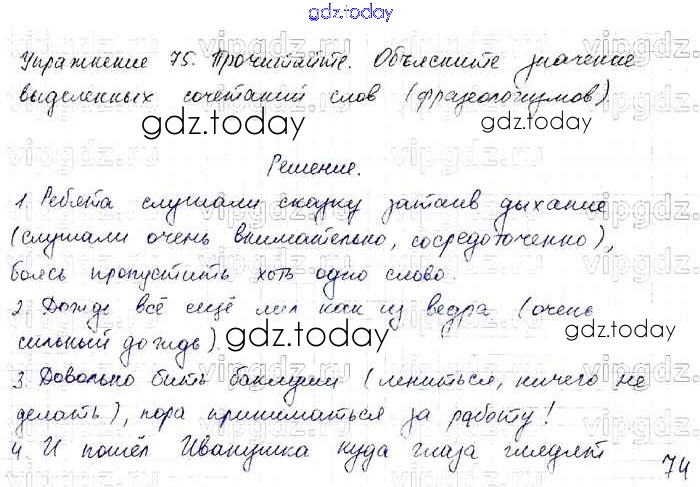 gdz.today
Упражнение 75. Прочитайте. Объясните значение
выделенных сочетаний слов (фразеологизмов)
gdz.today
gdz.today
Решение.
1. Ребята слушали сказку затаив дыхание
(слушали очень внимательно, сосредоточенно),
боясь пропустить хоть одно слово.
2. Дождь всё ещё лил как из ведра (очень
сильный дождь).
gdz.today
gdz.today
3. Довольно бить баклуши (лениться, ничего не
делать), пора приниматься за работу!
4. И пошёл Иванушка куда глаза глядят
74